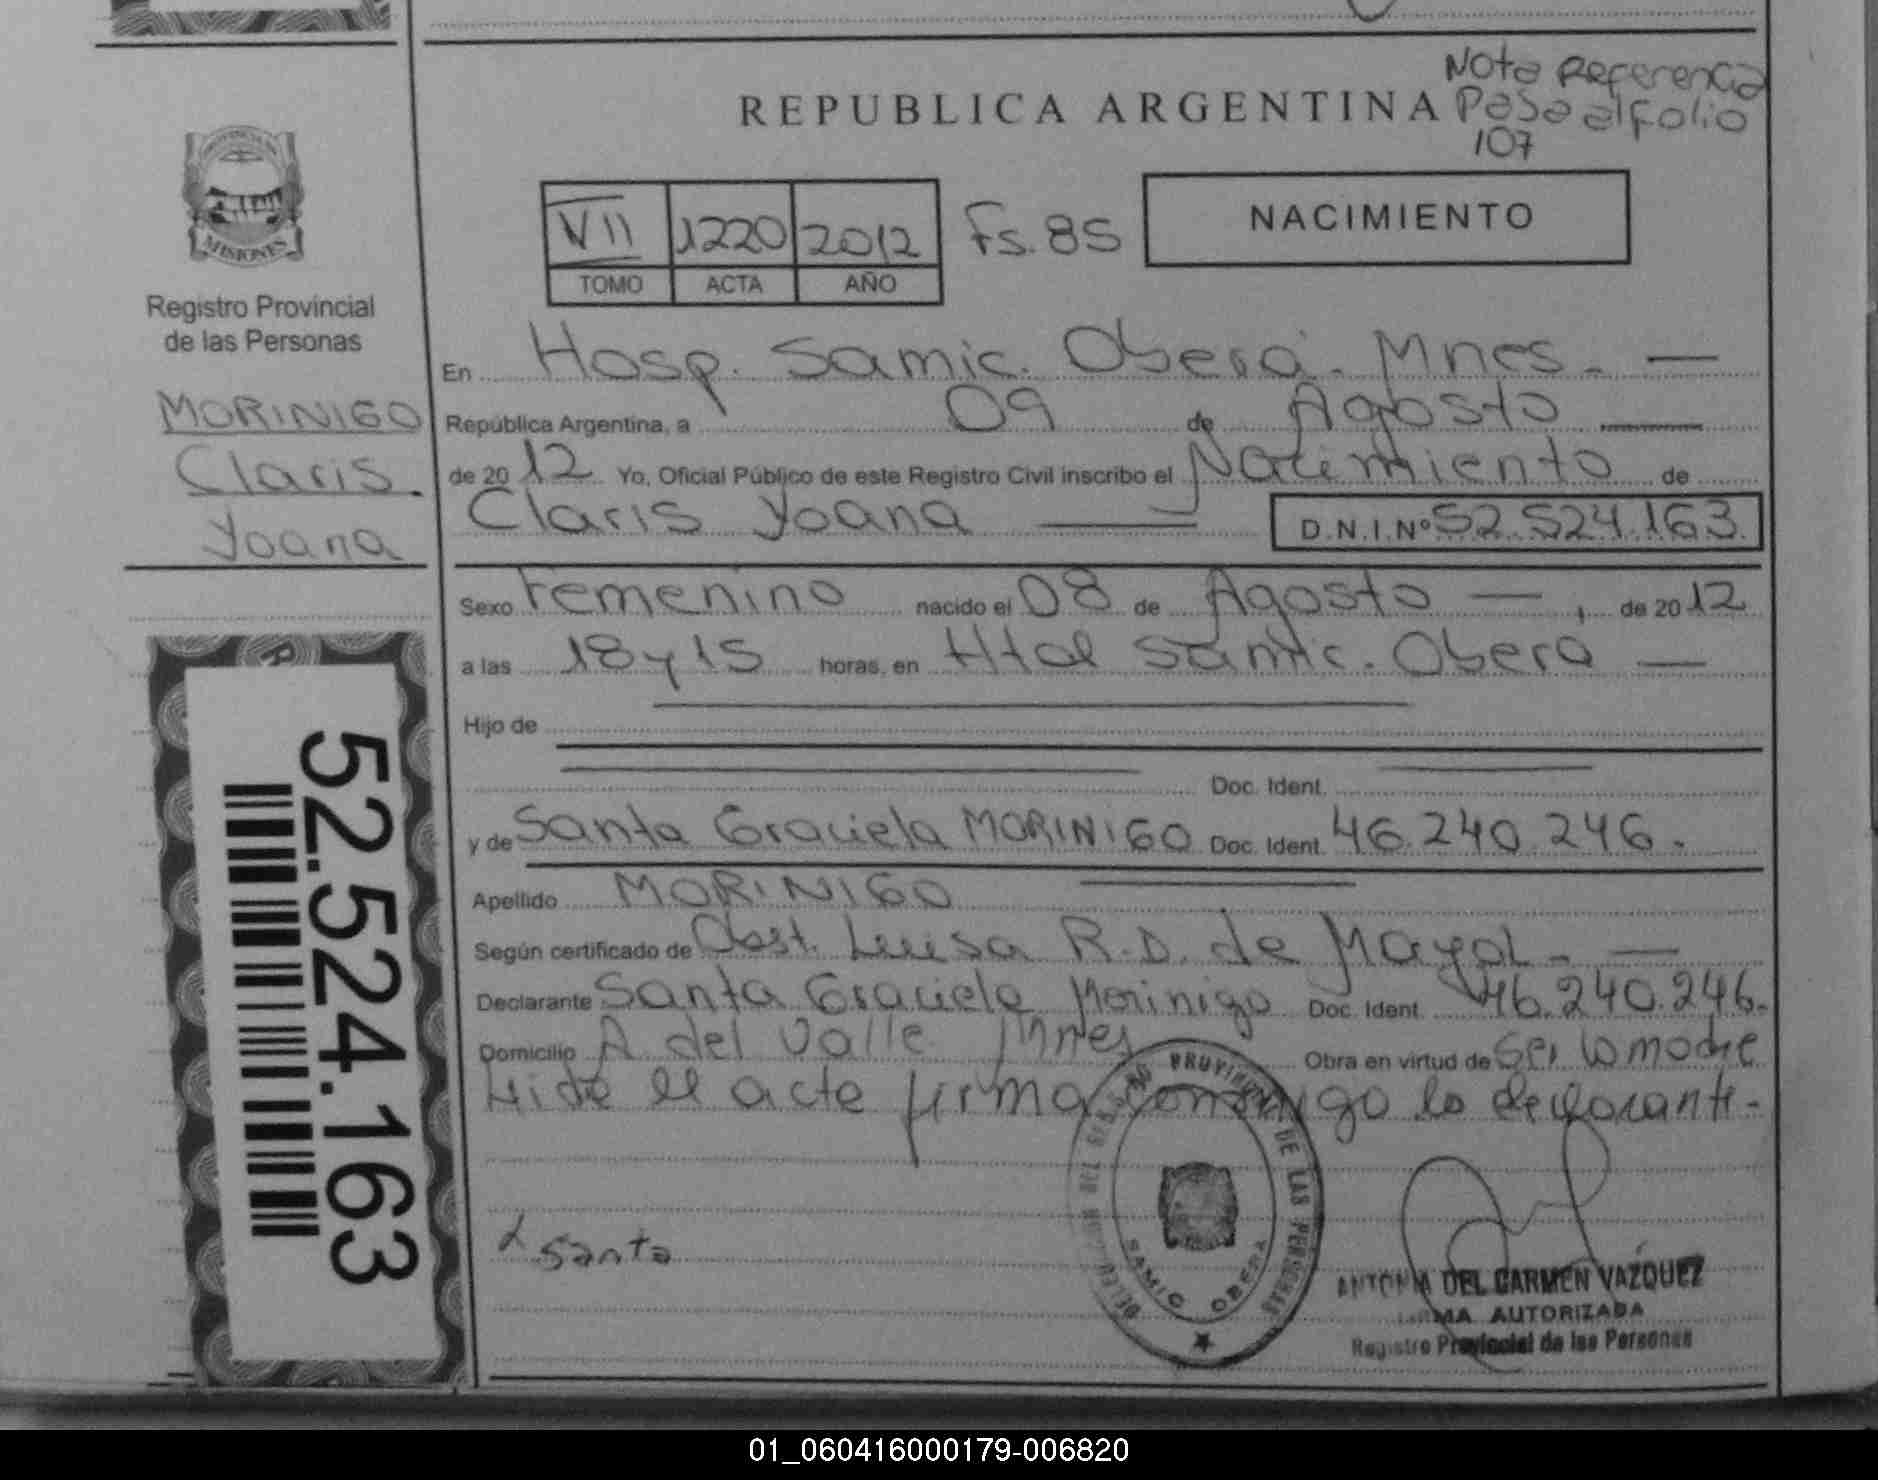 Nota Referencia
REPUBLICA ARGENTINA Pasa al folio
107
PROVINCIA DE
MISIONES
Registro Provincial
de las Personas
MORINIGO
Claris
Yoana
VII 1220 2012 Fs. 85
TOMO ACTA AÑO
NACIMIENTO
En Hosp. Samic. Oberá. Mnes.
República Argentina, a 09 de Agosto
de 2012 Yo, Oficial Público de este Registro Civil inscribo el Nacimiento de
Claris Yoana D.N.I.Nº 52.524.163
Sexo Femenino nacido el 08 de Agosto —, de 2012
a las 18 y 15 horas, en Htal Samic. Obera —
Hijo de
Doc. Ident.
y de Santa Graciela MORINIGO Doc. Ident. 46.240.246.
Apellido MORINIGO
Según certificado de Obst. Luisa R.D. de Mayol. —
Declarante Santa Graciela Morinigo Doc. Ident. 46.240.246.
Domicilio A del Valle Mnes Obra en virtud de Ser la madre
el acta firma conmigo la declarante-
Santa
PROVINCIAL DE LAS PERSONAS
SAMIC OBERA
ANTONIA DEL CARMEN VAZQUEZ
FIRMA AUTORIZADA
Registro Provincial de las Personas
52.524.163
01_060416000179-006820